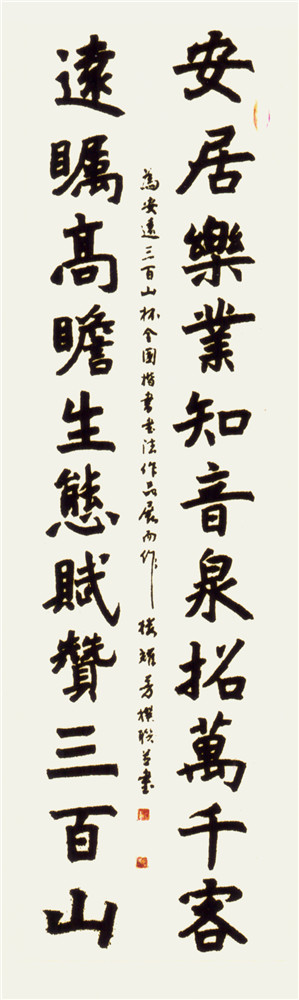 安居樂業知音泉招萬千客
遠矚高瞻生態賦贊三百山
為安遠三百山杯全國楷書書法作品展而作
樓耀芳撰聯并書